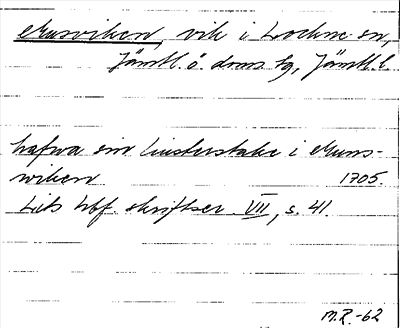 Munsviken, vik i Lockne sn,
Jämtl. ö. doms. hg, Jämtl. l.
hafwa sin Liusterstake i Muns-
wiken 1705.
Lits hbf. skriftser. VII, s. 41.
M.R.-62